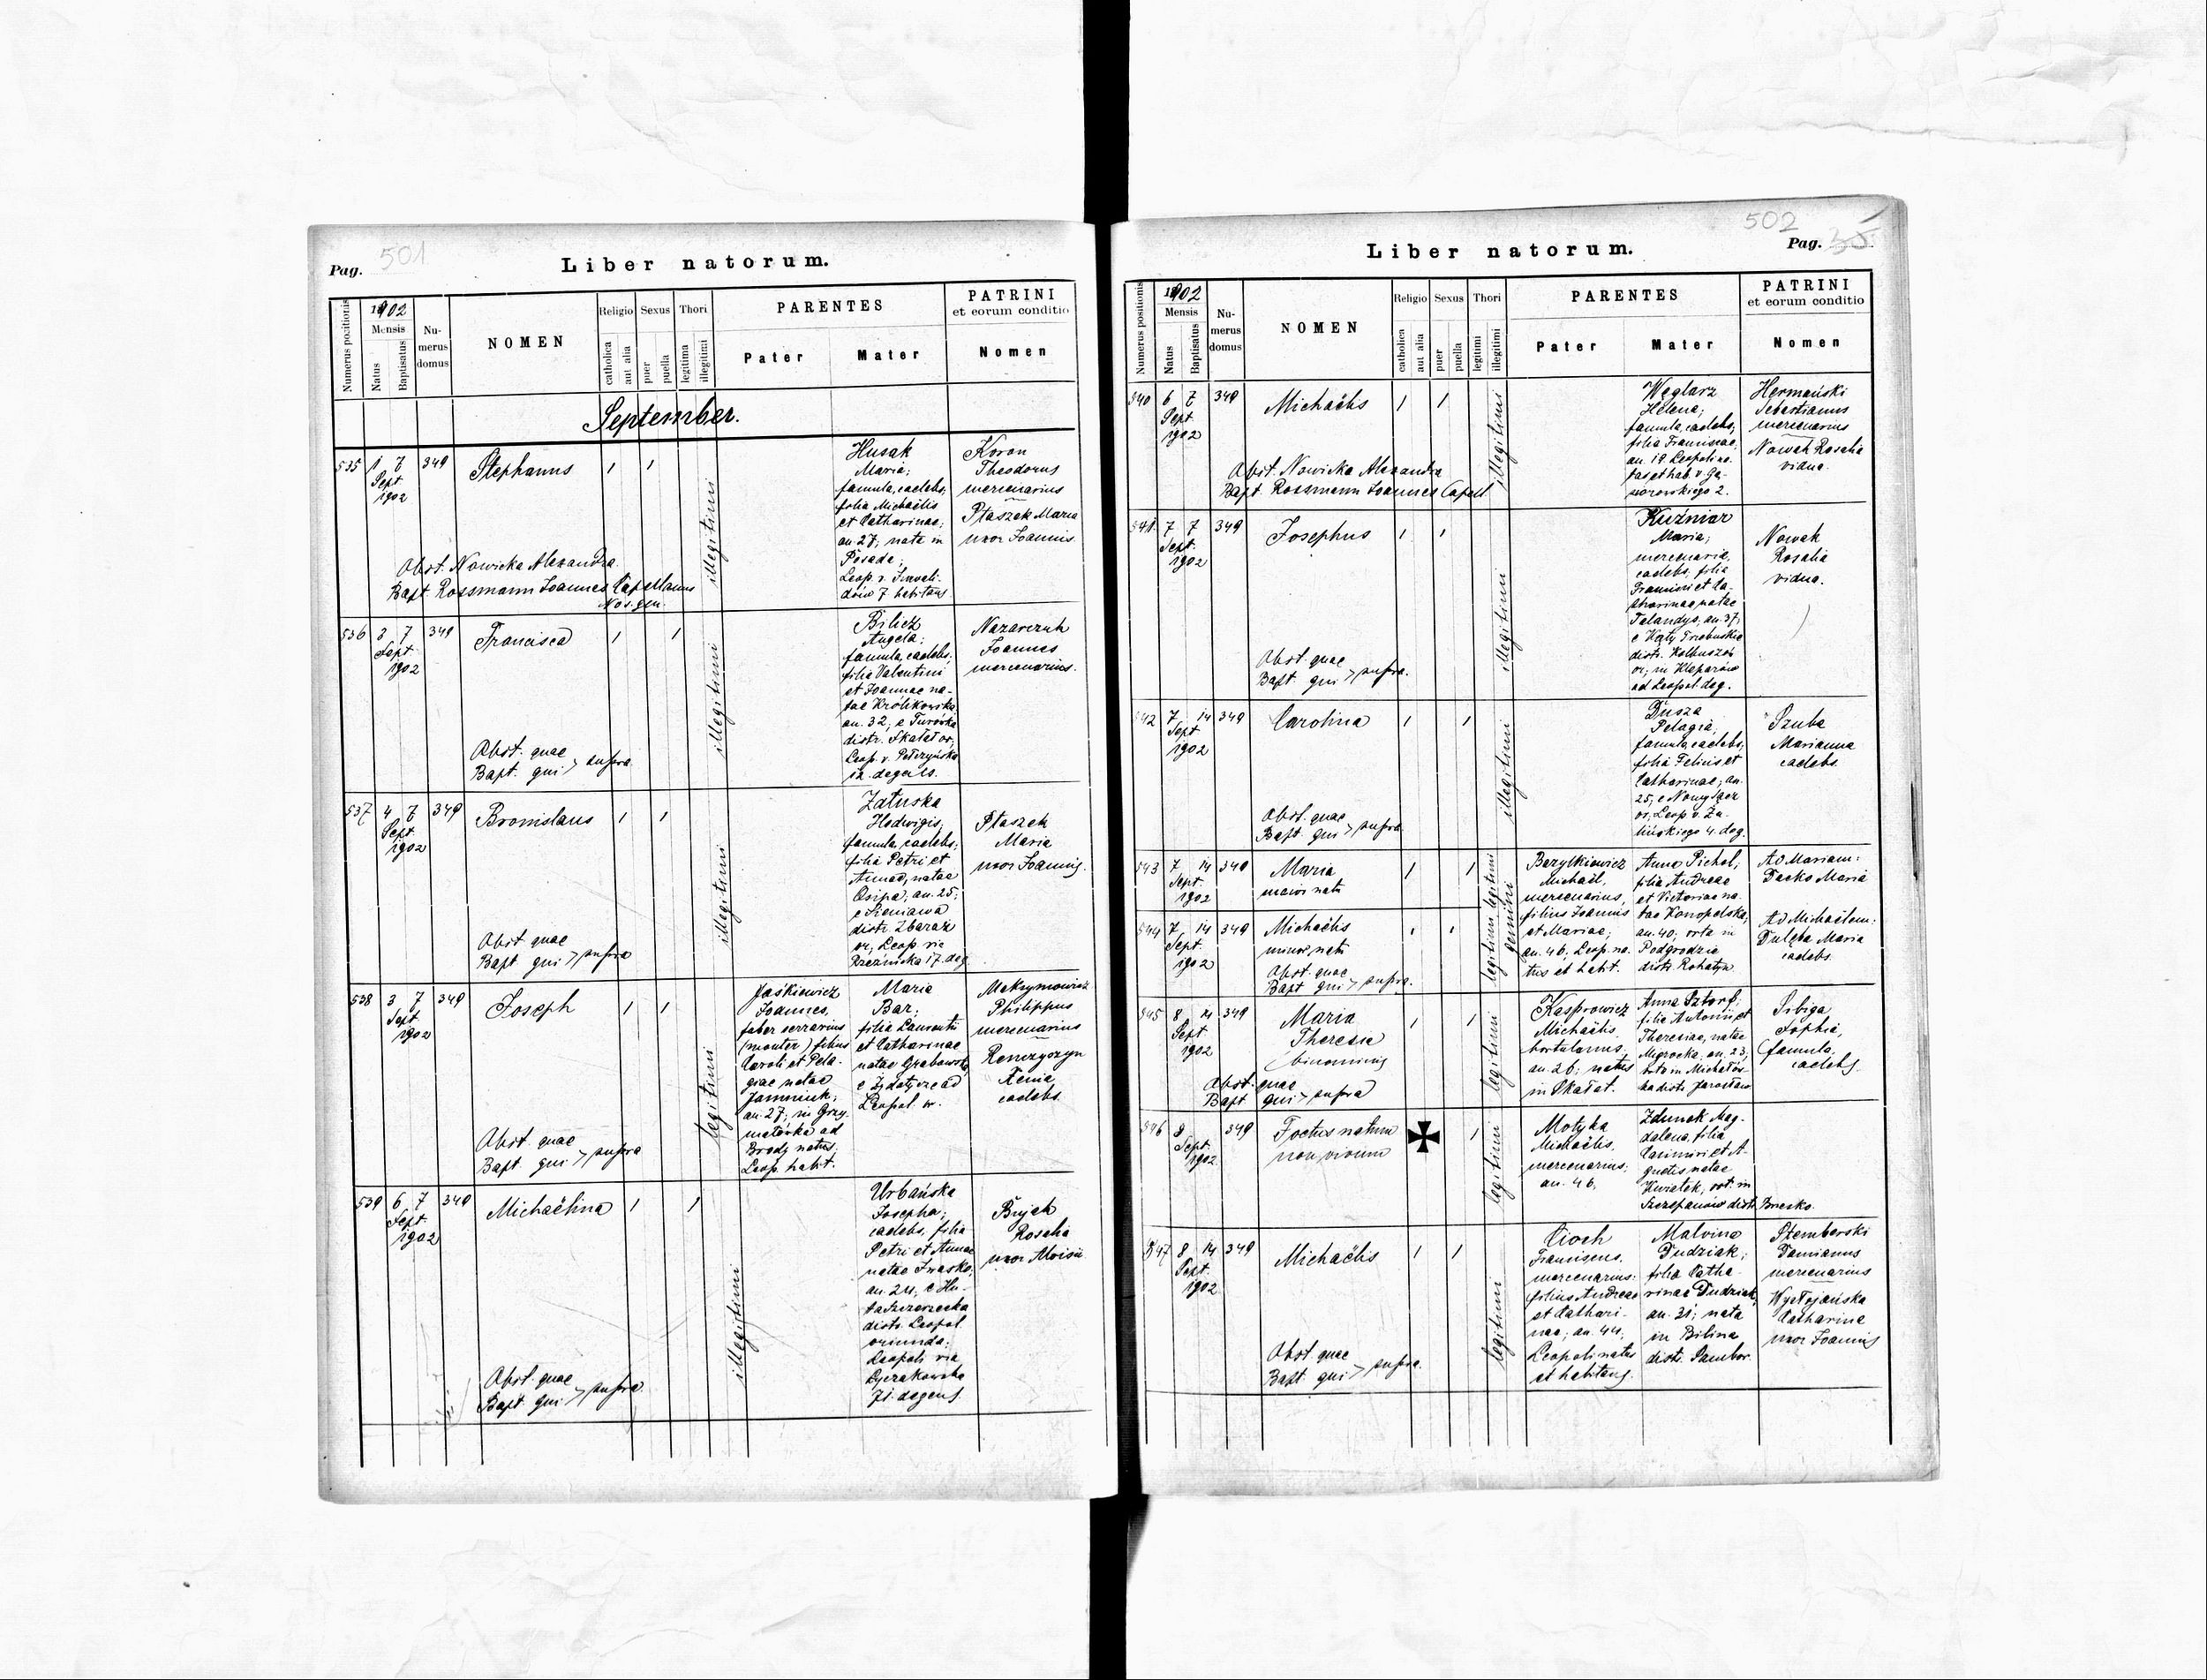 501
Pag.
Liber natorum.
Numerus positionis
1902
Mensis
Natus
Baptisatus
Nu-
merus
domus
NOMEN
Religio
catholica
aut alia
Sexus
puer
puella
Thori
legitima
illegitimi
PARENTES
Pater
Mater
PATRINI
et eorum conditio
Nomen
September.
535
1 7
Sept
1902
349
Stephanus
/
/
illegitimi
Husak
Maria;
famula, caelebs;
filia Michaëlis
et Catharinae;
an. 27; nata in
Posada;
Leop. v. Inwali-
dów 7 habitans
Koron
Theodorus
mercenarius
Ptaszek Maria
uxor Joannis
Obst. Nowicka Alexandra
Bapt Rossmann Joannes Capellanus
Nos. gen.
536
3 7
Sept
1902
349
Francisca
/
/
illegitimi
Bilicz
Angela;
famula, caelebs.
filia Valentini
et Joannae na-
tae Królikowska
an. 32, e Turówka
distr. Skałat or;
Leop. v. Pełczyńska
degens.
Nazarczuk
Joannes
mercenarius.
Obst. quae
Bapt. qui > supra
537
4 7
Sept.
1902
349
Bronislaus
/
/
illegitimi
Załuska
Hedwigis;
famula, caelebs;
filia Petri et
Annae, natae
Osipa; an. 25;
e Sieniawa
distr. Zbaraż
or; Leop. via
Rzeźnicka 17. deg
Ptaszek
Maria
uxor Joannis.
Obst quae
Bapt qui > supra
538
3 7
Sept
1902
349
Joseph
/
/
legitimi
Jaśkiewicz
Joannes,
faber serrarius
(monter) filius
Caroli et Pela-
giae natae
Jamniuk;
an. 27; in Grzy-
małówka ad
Brody natus,
Leop. habit.
Maria
Bar;
filia Laurentii
et Catharinae
natae Grabowska
e Żydatycze ad
Leopol. or.
Maksymowicz
Philippus
mercenarius
Xenia
caelebs.
Obst. quae
Bapt. qui > supra
539
6 7
Sept.
1902
349
Michaëlina
/
/
illegitimi
Urbańska
Josepha;
caelebs, filia
Petri et Annae
natae Iwasko;
an. 24, e Hu-
ta Szczerzecka
distr. Leopol.
oriunda;
Leopoli via
Łyczakowska
71. degens.
Bujak
Rosalia
uxor Aloisii
Obst. quae
Bapt. qui > supra
502
Pag.
Liber natorum.
Numerus positionis
1902
Mensis
Natus
Baptisatus
Nu-
merus
domus
NOMEN
Religio
catholica
aut alia
Sexus
puer
puella
Thori
legitimi
illegitimi
PARENTES
Pater
Mater
PATRINI
et eorum conditio
Nomen
540
6 7
Sept
1902
349
Michaëlis
/
/
illegitimi
Węglarz
Helena;
famula, caelebs;
filia Franciscae,
an. 19. Leopoli na-
ta et hab. v. Gą-
siorowskiego 2.
Hermański
Sebastianus
mercenarius
Nowak Rosalia
vidua.
Obst. Nowicka Alexandra
Bapt Rossmann Joannes Capell.
541
7 7
Sept.
1902
349
Josephus
/
/
illegitimi
Kuźniar
Maria;
mercenaria,
caelebs, filia
Francisci et Ca-
tharinae natae
Falandys, an. 37;
e Kąty Trzebuskie
distr. Kolbuszów
or; in Kleparów
ad Leopol. deg.
Nowak
Rosalia
vidua.
Obst. quae
Bapt. qui > supra.
542
7 14
Sept
1902
349
Carolina
/
/
illegitimi
Dusza
Pelagia,
famula, caelebs;
filia Felicis et
Catharinae; an.
25; e Nowy Sącz
or; Leop. v. Zu-
lińskiego 4. deg.
Szuba
Marianna
caelebs.
Obst. quae
Bapt. qui > supra
543
7 14
Sept.
1902
349
Maria
maior natu
/
/
legitimi
gemini
Bazylkiewicz
Michaël,
mercenarius,
filius Joannis
et Mariae;
an. 46, Leop. na-
tus et habit.
Anna Pichal;
filia Andreae
et Victoriae na-
tae Konopelska;
an. 40; orta in
Podgrodzie
distr. Rohatyn.
Ad Mariam:
Dacko Maria
544
7 14
Sept.
1902
349
Michaëlis
minor natu
/
/
legitimi
Ad Michaëlem:
Dulęba Maria
caelebs.
Obst. quae
Bapt qui > supra.
545
8 14
Sept
1902
349
Maria
Theresia
binominis
/
/
legitimi
Kasprowicz
Michaëlis
hortulanus.
an. 26; natus
in Skałat.
Anna Sztorf;
filia Antonii et
Theresiae, natae
Mgrocka. an. 23,
distr. Jarosław
Sibiga
Sophia,
famula.
caelebs.
Obst. quae
Bapt qui > supra
546
8
Sept.
1902
349
Foetus natum
non vivum
/
legitimi
Motyka
Michaëlis,
mercenarius;
an. 46.
Zdunek Mag-
dalena, filia
Casimiri et A-
gnetis natae
Kwiatek; ort. in
Szczepanów distr. Brzesko.
547
8 14
Sept.
1902
349
Michaëlis
/
/
legitimi
Cioch
Franciscus,
mercenarius:
filius Andreae
et Cathari-
nae; an. 44,
Leopoli natus
et habitans.
Malvina
Dudziak;
filia Catha-
rinae Dudziak,
an. 31; nata
in Bilina
distr. Sambor.
Sztemberski
Damianus
mercenarius
Catharina
uxor Joannis
Obst. quae
Bapt. qui > supra.